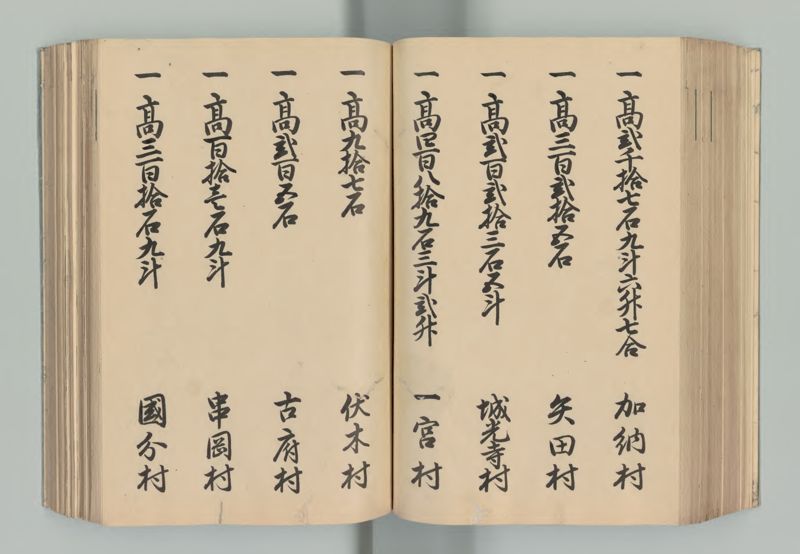 一 高弐千拾七石九斗六升七合 加納村
一 高三百弐拾五石 矢田村
一 高弐百弐拾三石五斗 城光寺村
一 高四百八拾九石三斗弐升 一宮村
一 高九拾七石 伏木村
一 高弐百五石 古府村
一 高百拾壱石九斗 串岡村
一 高三百拾石九斗 國分村